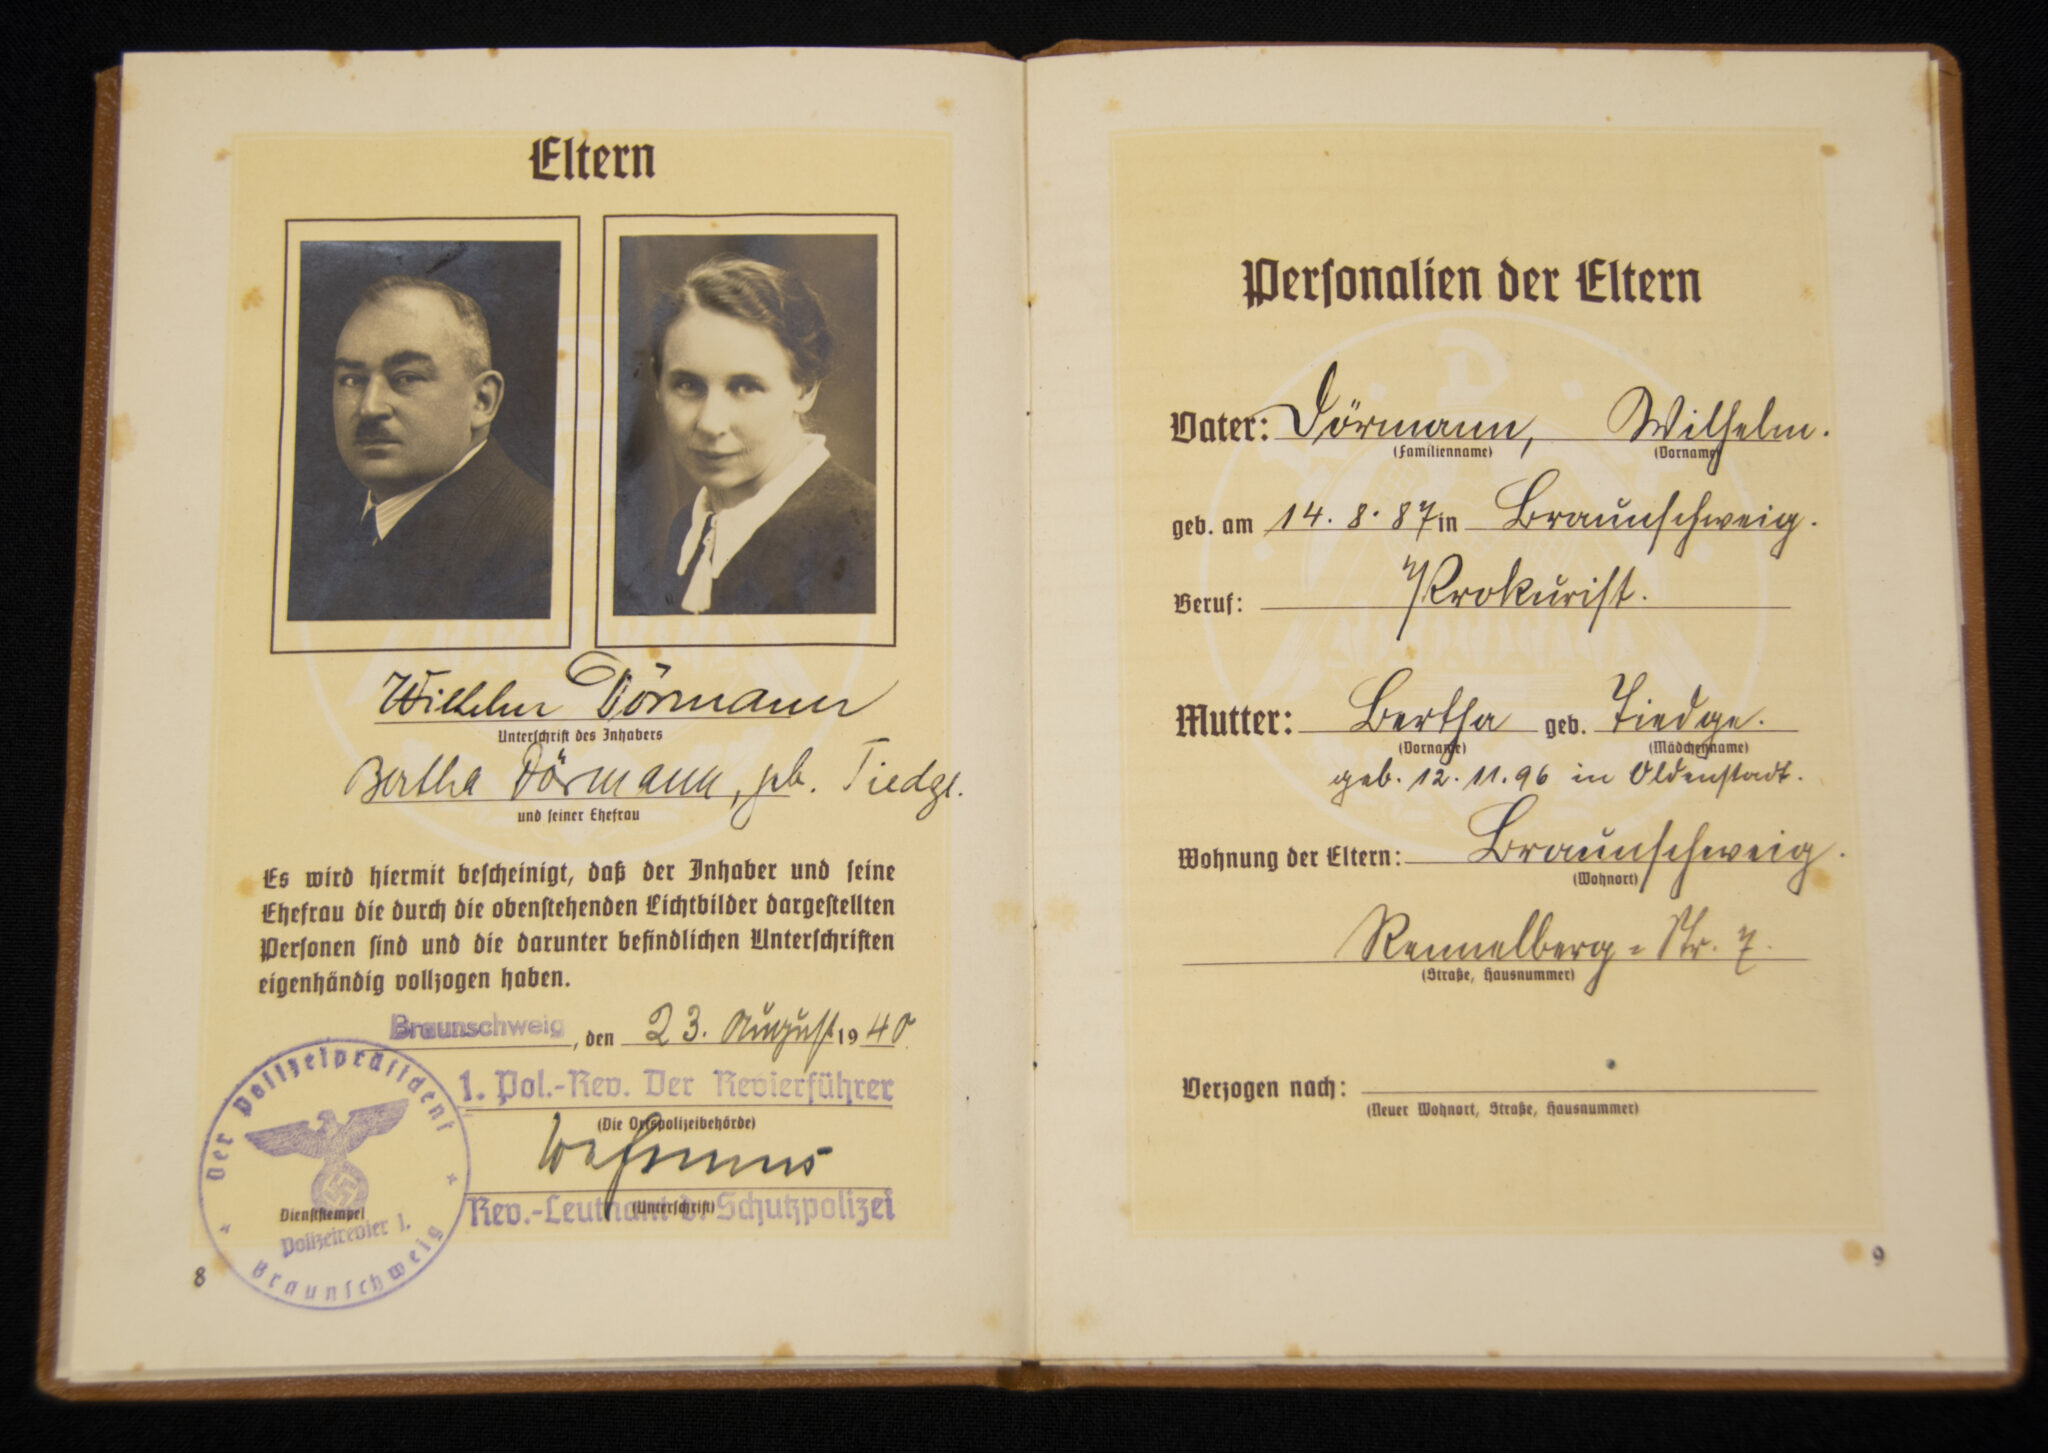 Eltern
Wilhelm Dörmann
Unterschrift des Inhabers
Bertha Dörmann, geb. Tiedge.
und seiner Ehefrau
Es wird hiermit bescheinigt, daß der Inhaber und seine
Ehefrau die durch die obenstehenden Lichtbilder dargestellten
Personen sind und die darunter befindlichen Unterschriften
eigenhändig vollzogen haben.
Braunschweig, den 23. August 1940.
1. Pol.-Rev. Der Revierführer
(Die Ortspolizeibehörde)
(Unterschrift)
Rev.-Leutnant d. Schutzpolizei
Der Polizeipräsident
Dienststempel
Polizeirevier 1.
Braunschweig
8
Personalien der Eltern
Vater: Dörmann, Wilhelm.
(Familienname) (Vorname)
geb. am 14. 8. 87 in Braunschweig.
Beruf: Prokurist.
Mutter: Bertha geb. Tiedge.
(Vorname) (Mädchenname)
geb. 12. 11. 96 in Oldenstadt.
Wohnung der Eltern: Braunschweig.
(Wohnort)
Rennelberg-Str. 7.
(Straße, Hausnummer)
Verzogen nach:
(Neuer Wohnort, Straße, Hausnummer)
9